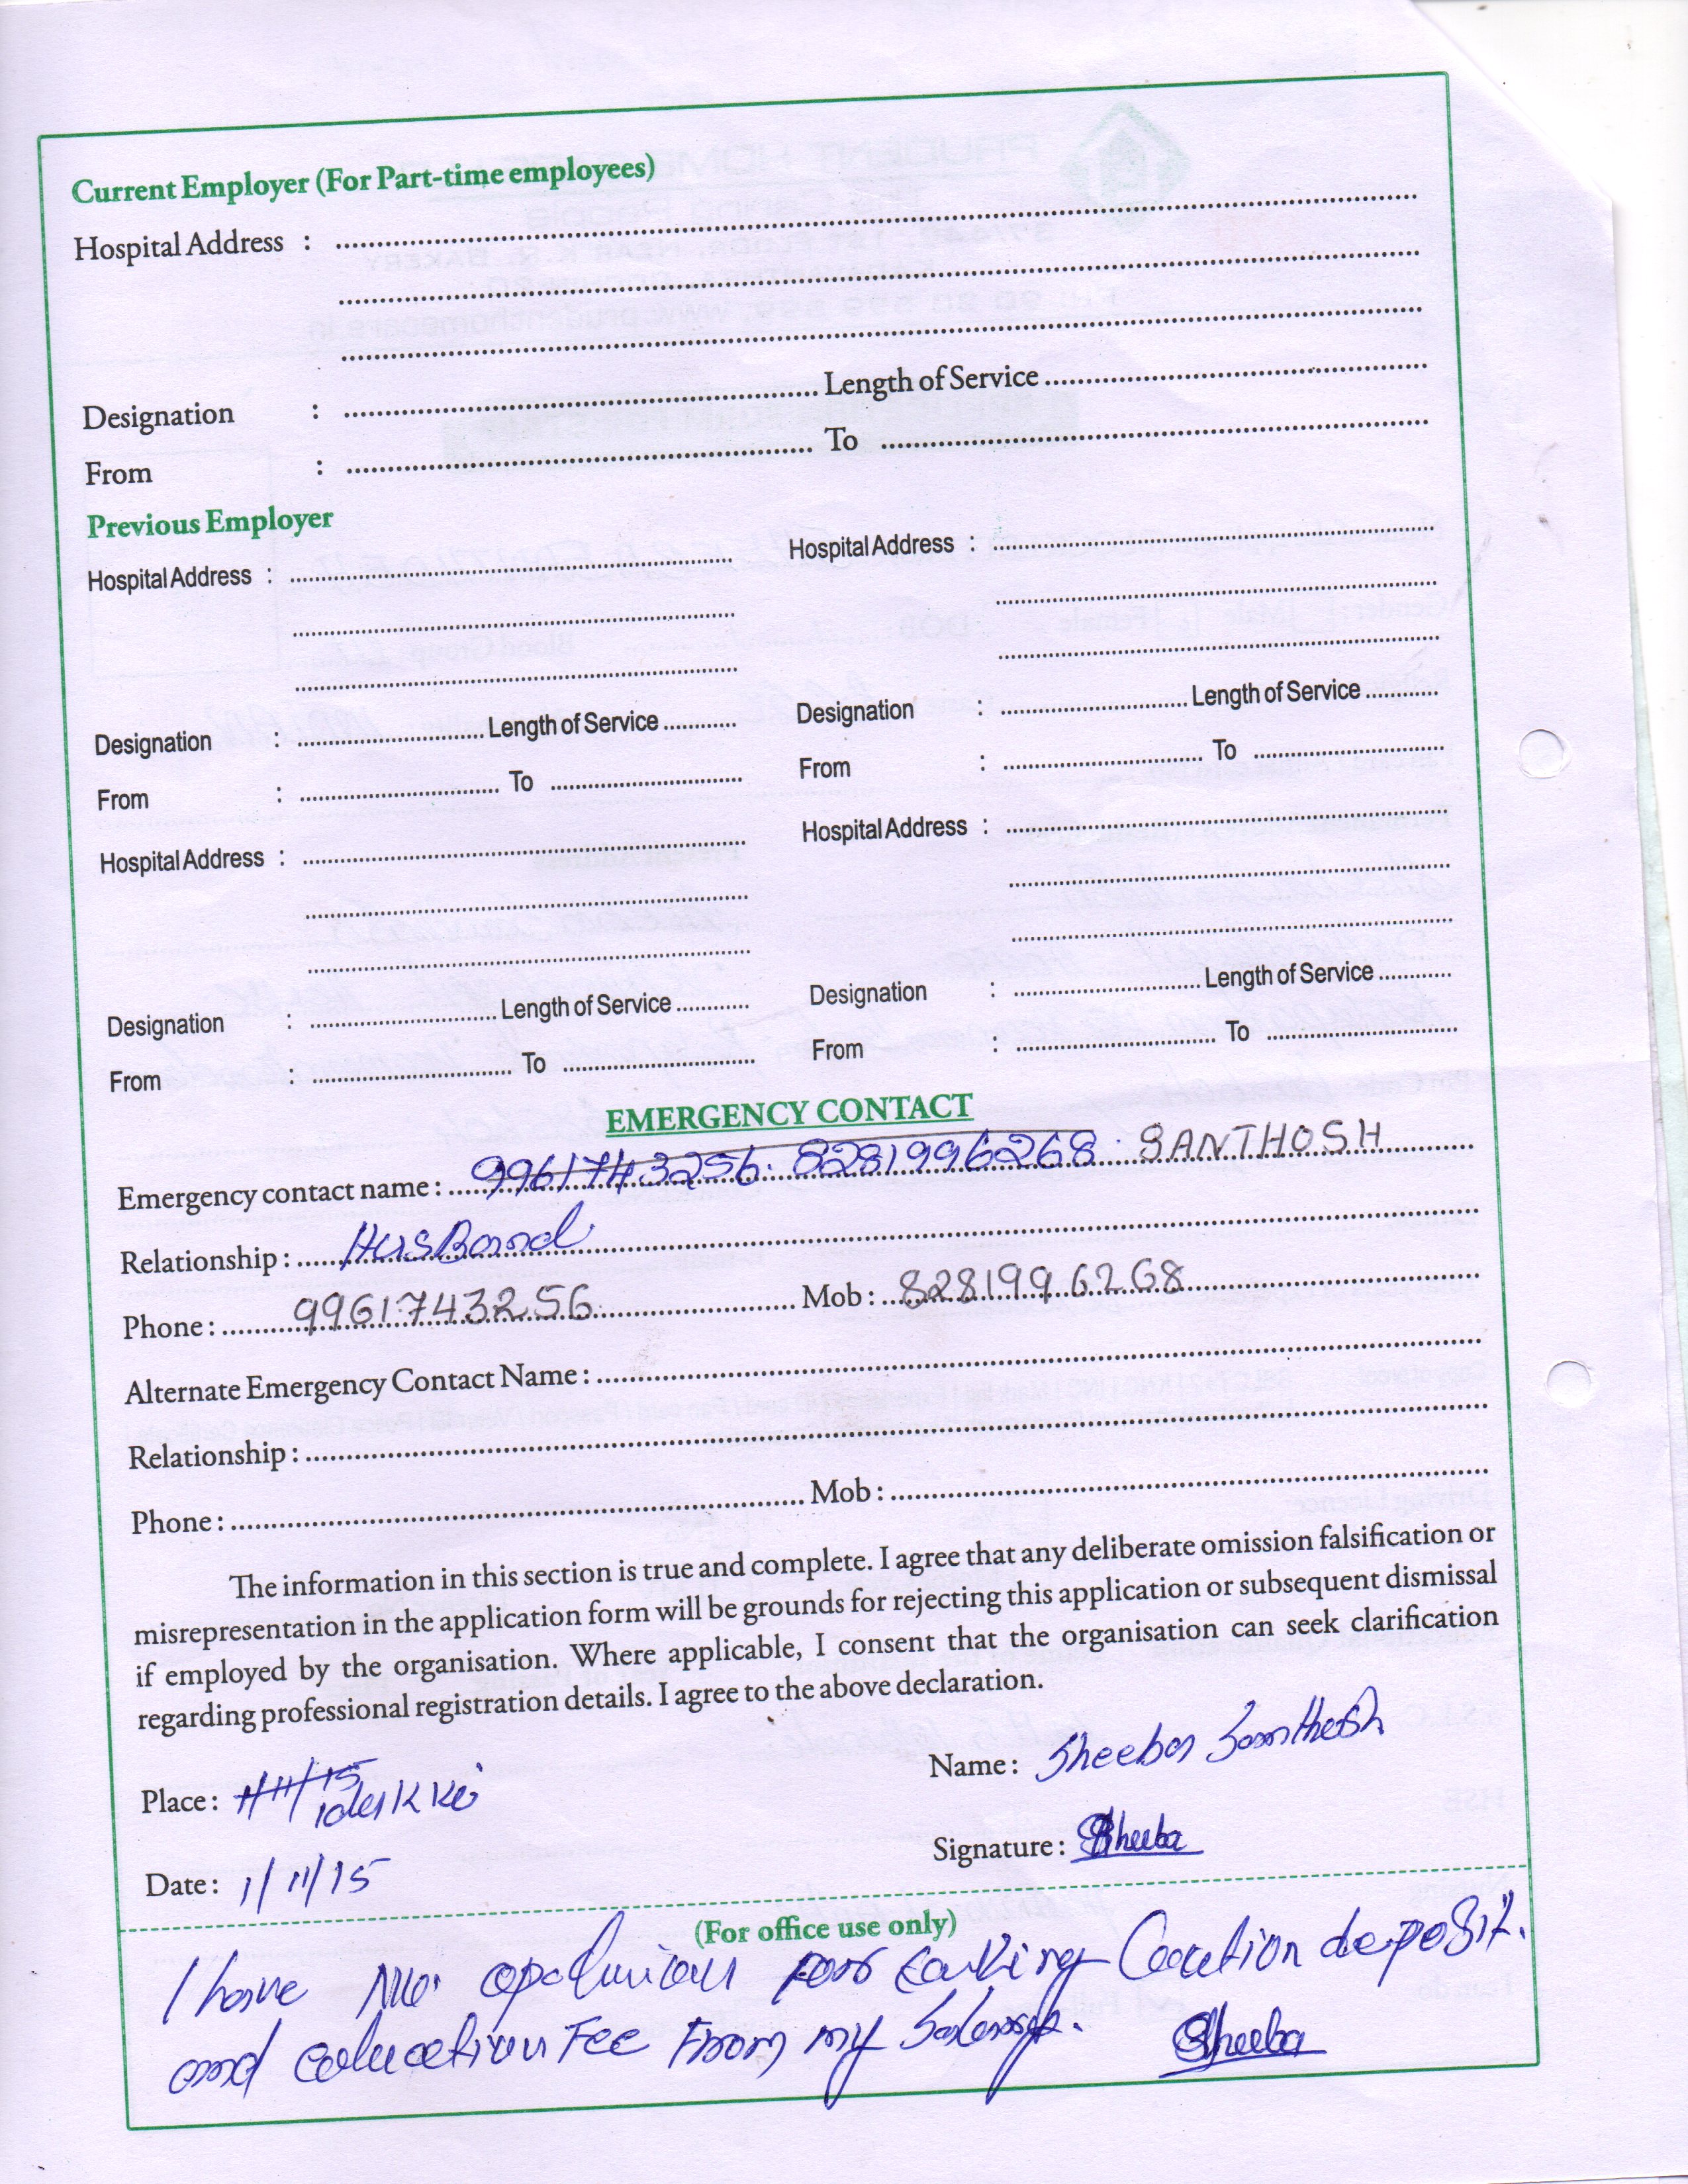 Current Employer (For Part-time employees)
Hospital Address :
Designation : Length of Service
From : To
Previous Employer
Hospital Address : Hospital Address :
Designation : Length of Service Designation : Length of Service
From : To From : To
Hospital Address : Hospital Address :
Designation : Length of Service Designation : Length of Service
From : To From : To
EMERGENCY CONTACT
Emergency contact name : 9961743256. 8281996268. SANTHOSH
Relationship : HusBand
Phone : 9961743256 Mob : 8281996268
Alternate Emergency Contact Name :
Relationship :
Phone : Mob :
The information in this section is true and complete. I agree that any deliberate omission falsification or
misrepresentation in the application form will be grounds for rejecting this application or subsequent dismissal
if employed by the organisation. Where applicable, I consent that the organisation can seek clarification
regarding professional registration details. I agree to the above declaration.
Place : 1/11/15 idukki Name : Sheeba Santhosh
Date : 1/11/15 Signature : Sheeba
(For office use only)
I have no for Caution deposit.
and education Fee From my Salary. Sheeba